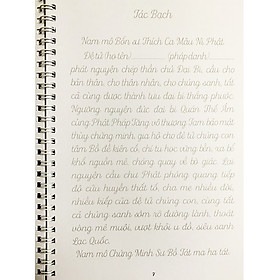 Tác Bạch
Nam mô Bổn sư Thích Ca Mâu Ni Phật.
Đệ tử (họ tên) (pháp danh)
phát nguyện chép thần chú Đại Bi, cầu cho
bản thân, cho thân nhân, cho chúng sanh, tất
cả cùng được thành tựu đại bi tháng phước.
Ngưỡng nguyện đức đại bi Quán Thế Âm
cùng Phật Pháp Tăng vô thượng Tam bảo mật
thùy chứng minh, gia hộ cho đệ tử chúng con
tâm Bồ đề kiên cố, chí tu học vững bền, xa bể
khổ nguồn mê, chóng quay về bờ giác. Lại
nguyện cầu chư Phật phóng quang tiếp
độ cửu huyền thất tổ, cha mẹ nhiều đời,
nhiều kiếp của đệ tử chúng con, cùng tất
cả chúng sanh sớm rõ đường lành, thoát
vòng mê muội, vượt khỏi u đồ, siêu sanh
Lạc Quốc.
Nam mô Chứng Minh Sư Bồ Tát ma ha tát.
7